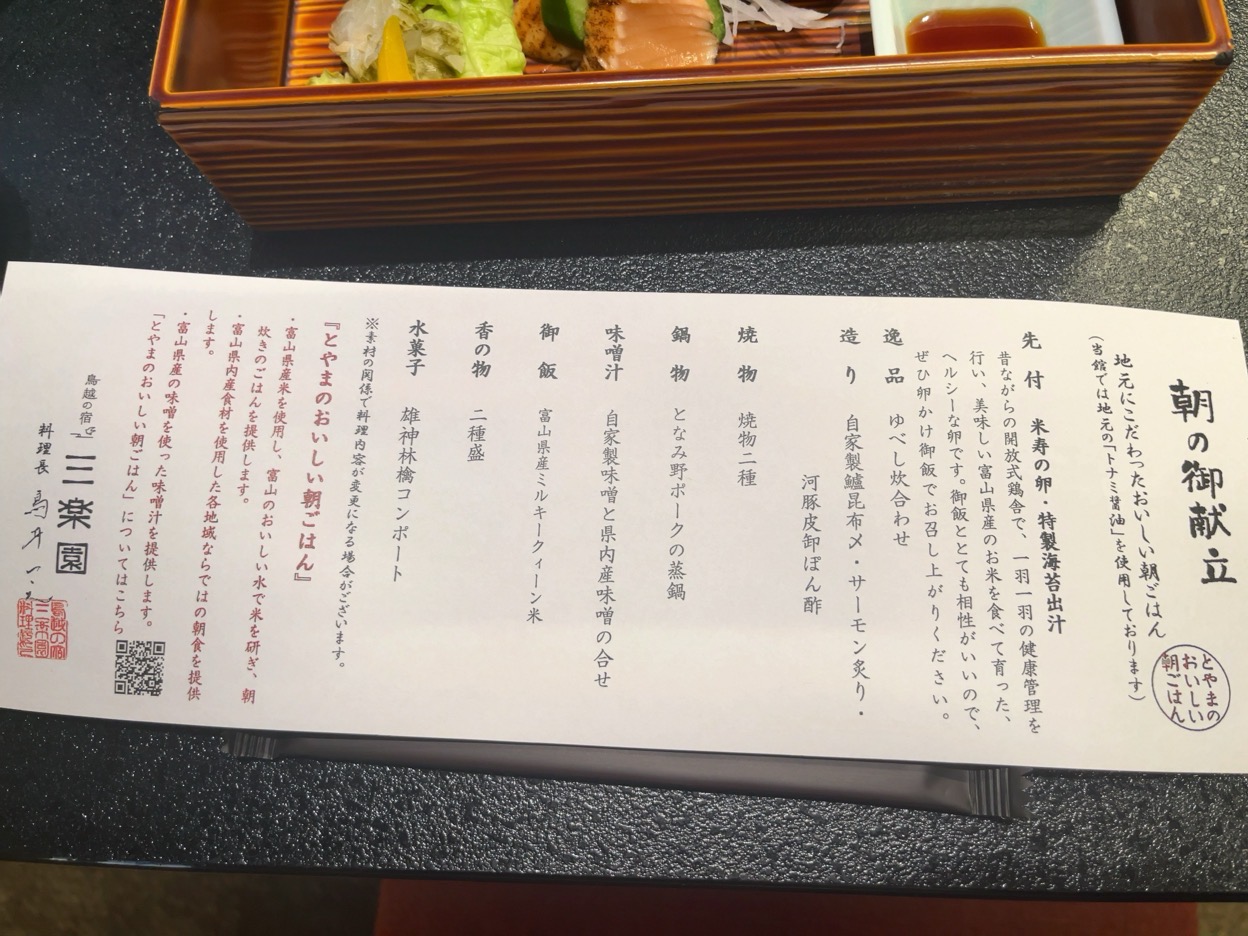 朝の御献立
地元にこだわったおいしい朝ごはん
(当館では地元の「トナミ醤油」を使用しております)
とやまの
おいしい
朝ごはん
先付　米寿の卵・特製海苔出汁
昔ながらの開放式鶏舎で、一羽一羽の健康管理を
行い、美味しい富山県産のお米を食べて育った、
ヘルシーな卵です。御飯ととても相性がいいので、
ぜひ卵かけ御飯でお召し上がりください。
逸品　ゆべし炊合わせ
造り　自家製鱸昆布〆・サーモン炙り・
河豚皮卸ぽん酢
焼物　焼物二種
鍋物　となみ野ポークの蒸鍋
味噌汁　自家製味噌と県内産味噌の合せ
御飯　富山県産ミルキークィーン米
香の物　二種盛
水菓子　雄神林檎コンポート
※素材の関係で料理内容が変更になる場合がございます。
『とやまのおいしい朝ごはん』
・富山県産米を使用し、富山のおいしい水で米を研ぎ、朝
炊きのごはんを提供します。
・富山県内産食材を使用した各地域ならではの朝食を提供
します。
・富山県産の味噌を使った味噌汁を提供します。
「とやまのおいしい朝ごはん」についてはこちら
鳥越の宿 三楽園
料理長
鳥越の宿
三楽園